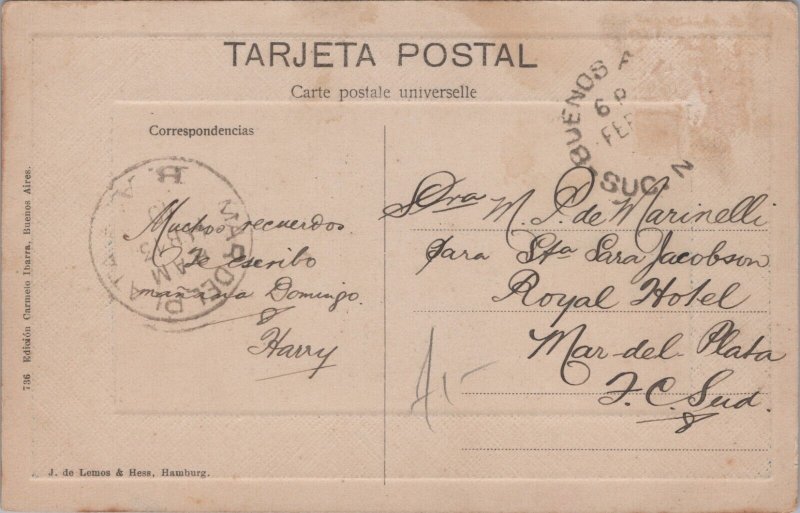 TARJETA POSTAL
Carte postale universelle
Correspondencias
BUENOS
6 P
FEB
SUC. N
MAR DEL PLATA
AM
Muchos recuerdos
Te escribo
mañana Domingo.
Harry
Sra M. P. de Marinelli
para Sta Sara Jacobson
Royal Hotel
Mar del Plata
F. C. Sud.
736 Edición Carmelo Ibarra, Buenos Aires.
J. de Lemos & Hess, Hamburg.